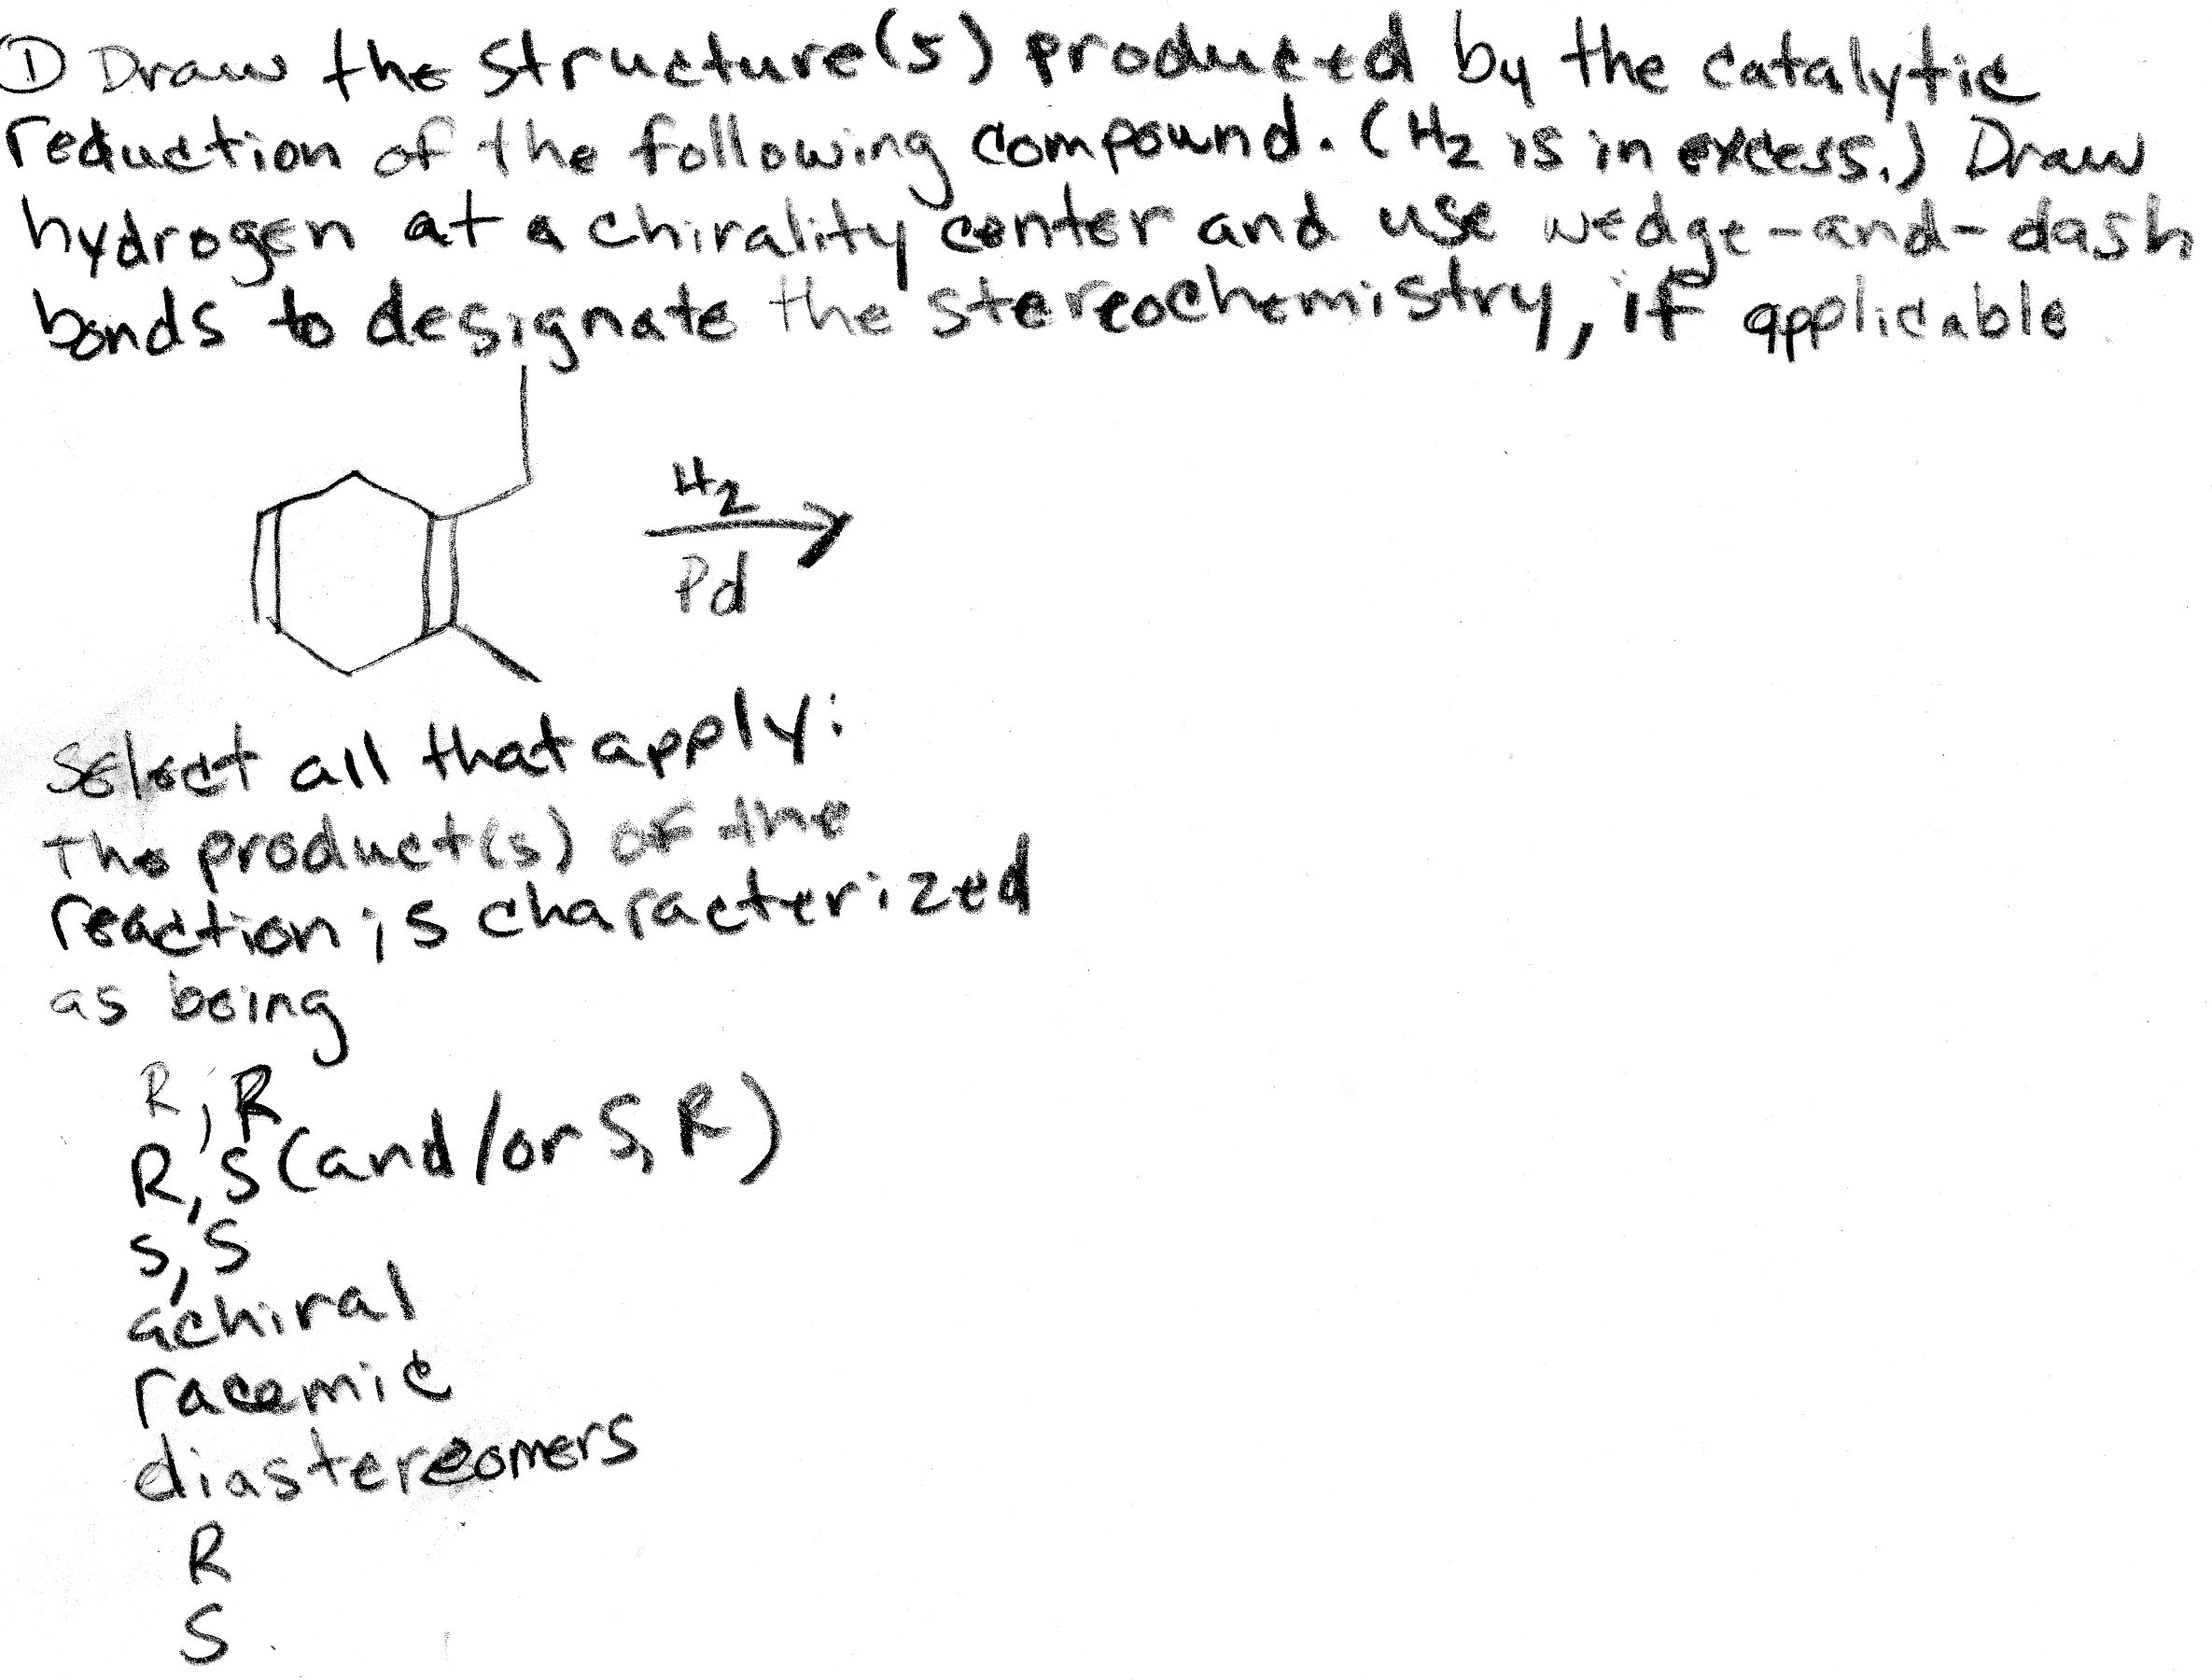 ① Draw the structure(s) produced by the catalytic
reduction of the following compound. (H₂ is in excess.) Draw
hydrogen at a chirality center and use wedge-and-dash
bonds to designate the stereochemistry, if applicable.
H₂
Pd
Select all that apply:
The product(s) of the
reaction is characterized
as being
R, R
R, S (and/or S, R)
S, S
achiral
racemic
diastereomers
R
S